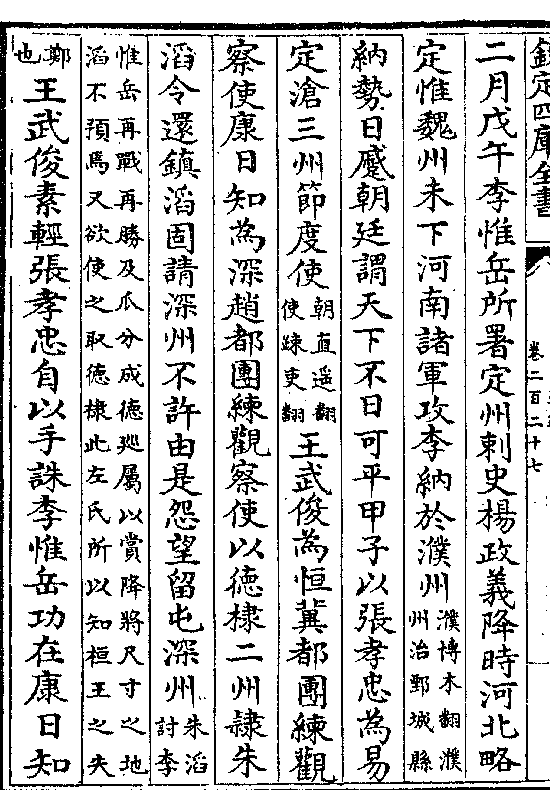 欽定四庫全書
卷二百二十七
二月戊午李惟岳所署定州刺史楊政義降時河北略
定惟魏州未下河南諸軍攻李納於濮州濮博木翻濮州治鄄城縣
納勢日蹙朝廷謂天下不日可平甲子以張孝忠為易
定滄三州節度使朝直遥翻使疎吏翻王武俊為恒冀都團練觀
察使康日知為深趙都團練觀察使以德棣二州隸朱
滔令還鎮滔固請深州不許由是怨望留屯深州朱滔討李
惟岳再戰再勝及瓜分成德廵屬以賞降將尺寸之地
滔不預焉又欲使之取德棣此左氏所以知桓王之失
鄭也王武俊素輕張孝忠自以手誅李惟岳功在康日知